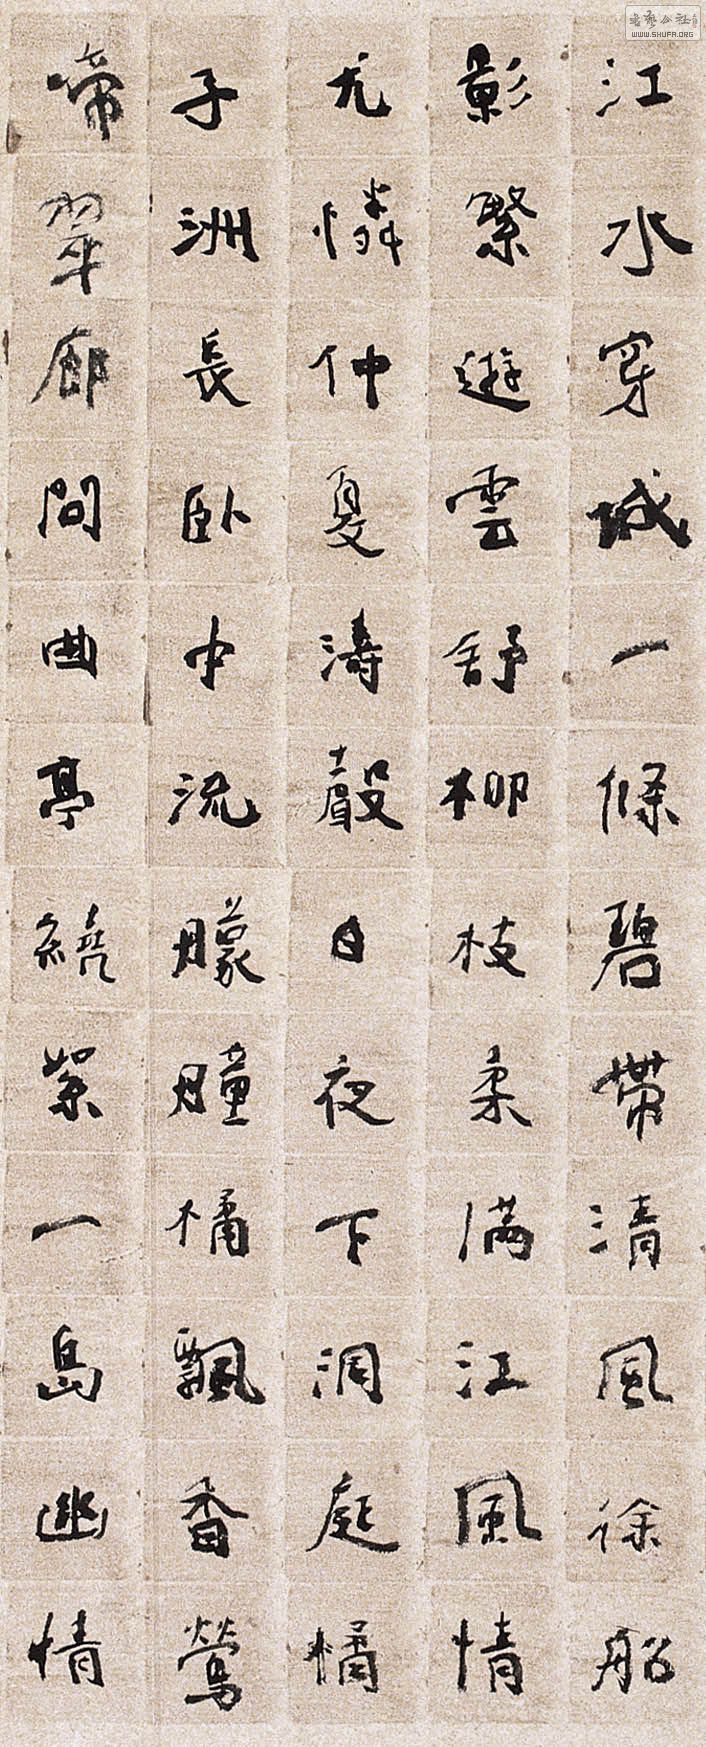 江水穿城一條碧帶清風徐船
影繫遊雲舒柳枝柔滿江風情
尤憐仲夏濤聲日夜下洞庭橘
子洲長臥中流朦朣橘飄香鶯
啼翠廊間曲亭繞縈一島幽情
WWW.SHUFA.ORG